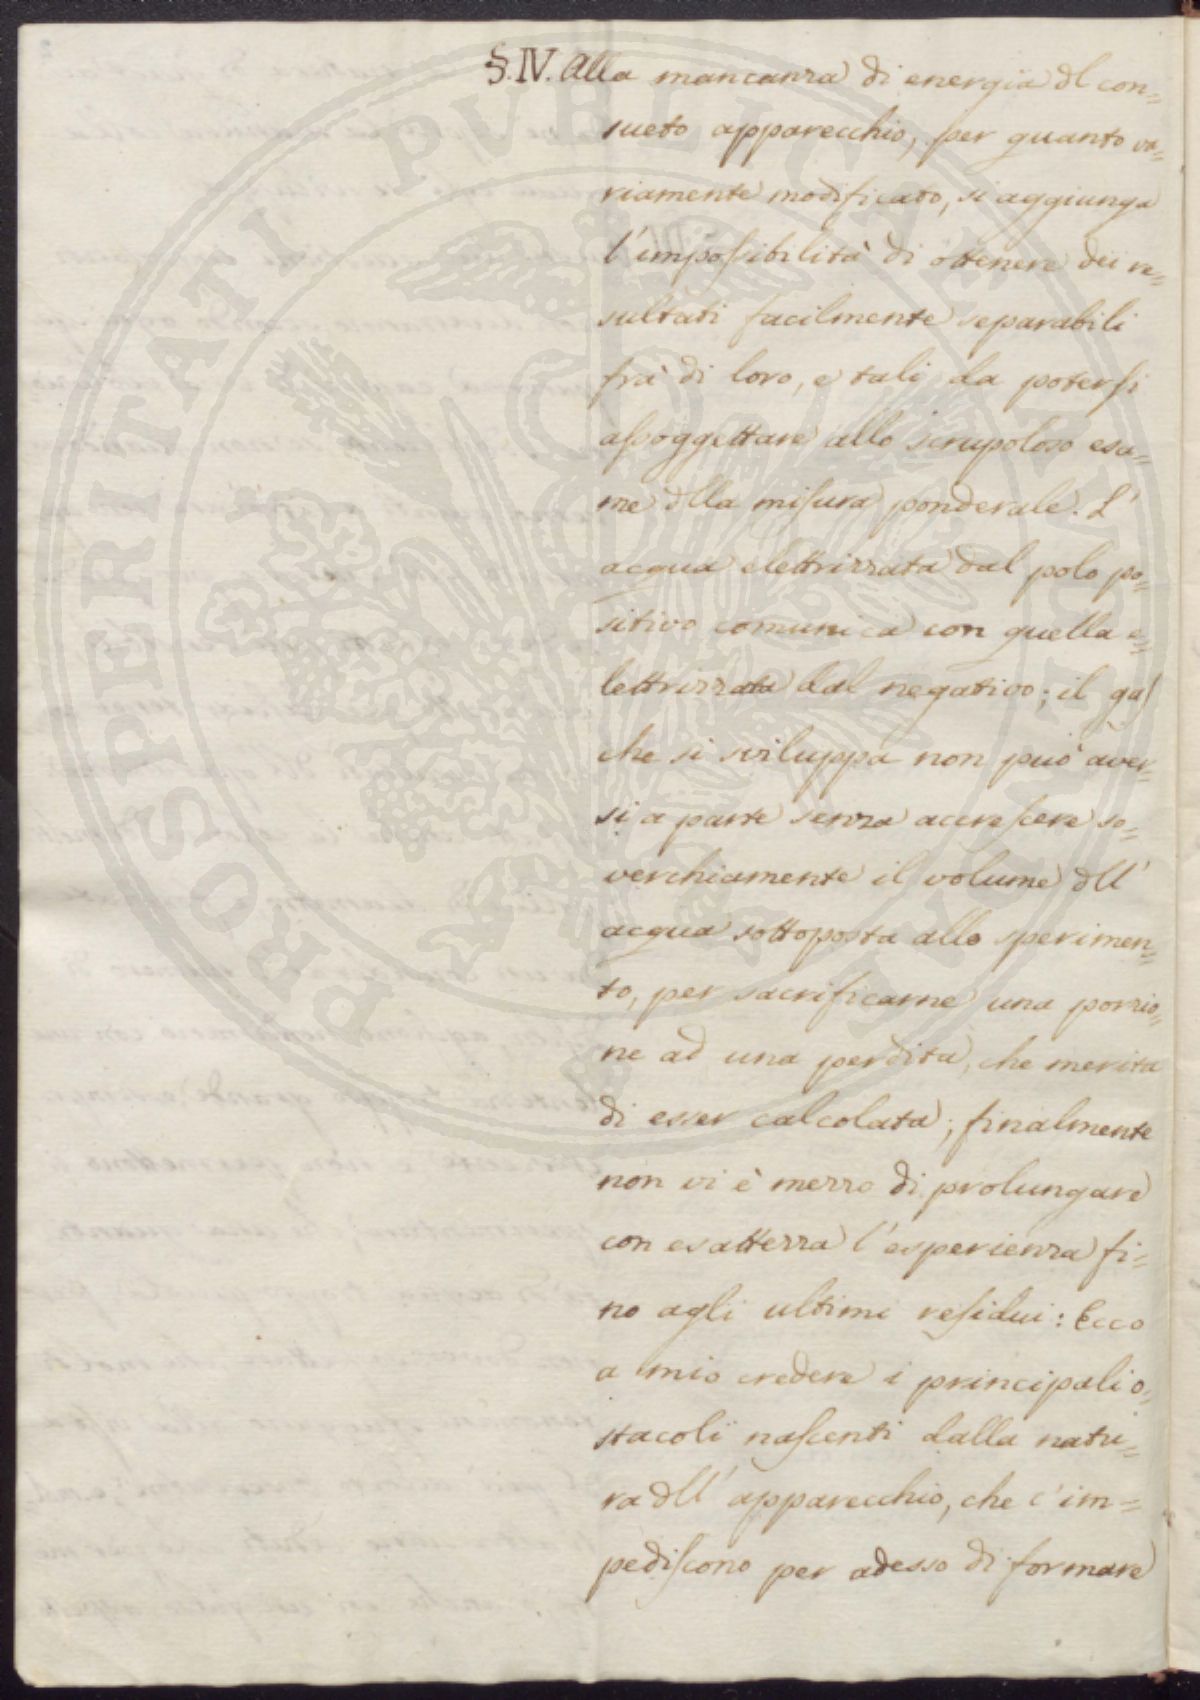 §. IV. Alla mancanza di energia dl con=
sueto apparecchio, per quanto va=
riamente modificato, si aggiunga
l'impoſsibilità di ottenere dei re=
sultati facilmente separabili
frà di loro, e tali da poterſi
aſsoggettare allo scrupoloso esa=
me dlla miſura ponderale. L'
acqua elettrizzata dal polo po=
sitivo comunica con quella e=
lettrizzata dal negativo; il gaſ
che si sviluppa non può aver=
si a parte senza accreſcere so=
verchiamente il volume dll'
acqua sottoposta allo sperimen=
to, per sacrificarne una porzio=
ne ad una perdita, che merita
di esser calcolata; finalmente
non vi è mezzo di prolungare
con esattezza l'esperienza fi=
no agli ultimi reſidui: Ecco
a mio credere i principali o=
stacoli naſcenti dalla natu=
ra dll' apparecchio, che c'im=
pediſcono per adesso di formare
PROSPERITATI PUBLICAE AUGENDAE